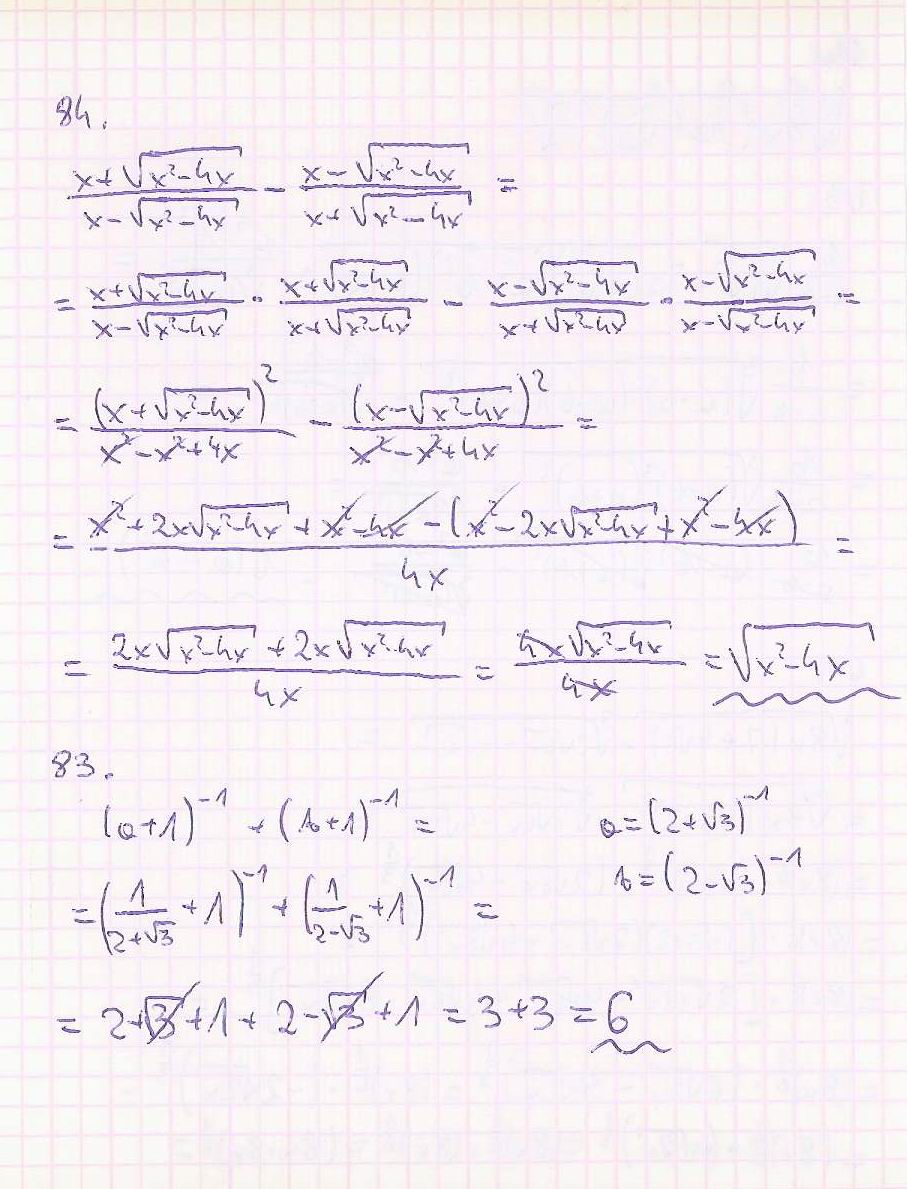 84.
(x+√(x²-4x))/(x-√(x²-4x)) - (x-√(x²-4x))/(x+√(x²-4x)) =
= (x+√(x²-4x))/(x-√(x²-4x)) · (x+√(x²-4x))/(x+√(x²-4x)) - (x-√(x²-4x))/(x+√(x²-4x)) · (x-√(x²-4x))/(x-√(x²-4x)) =
= (x+√(x²-4x))²/(x²-x²+4x) - (x-√(x²-4x))²/(x²-x²+4x) =
= (x²+2x√(x²-4x)+x²-4x-(x²-2x√(x²-4x)+x²-4x))/(4x) =
= (2x√(x²-4x)+2x√(x²-4x))/(4x) = (4x√(x²-4x))/(4x) = √(x²-4x)
83.
(a+1)⁻¹ + (b+1)⁻¹ = a=(2+√3)⁻¹
b=(2-√3)⁻¹
= (1/(2+√3)+1)⁻¹ + (1/(2-√3)+1)⁻¹ =
= 2+√3+1+2-√3+1 = 3+3 = 6